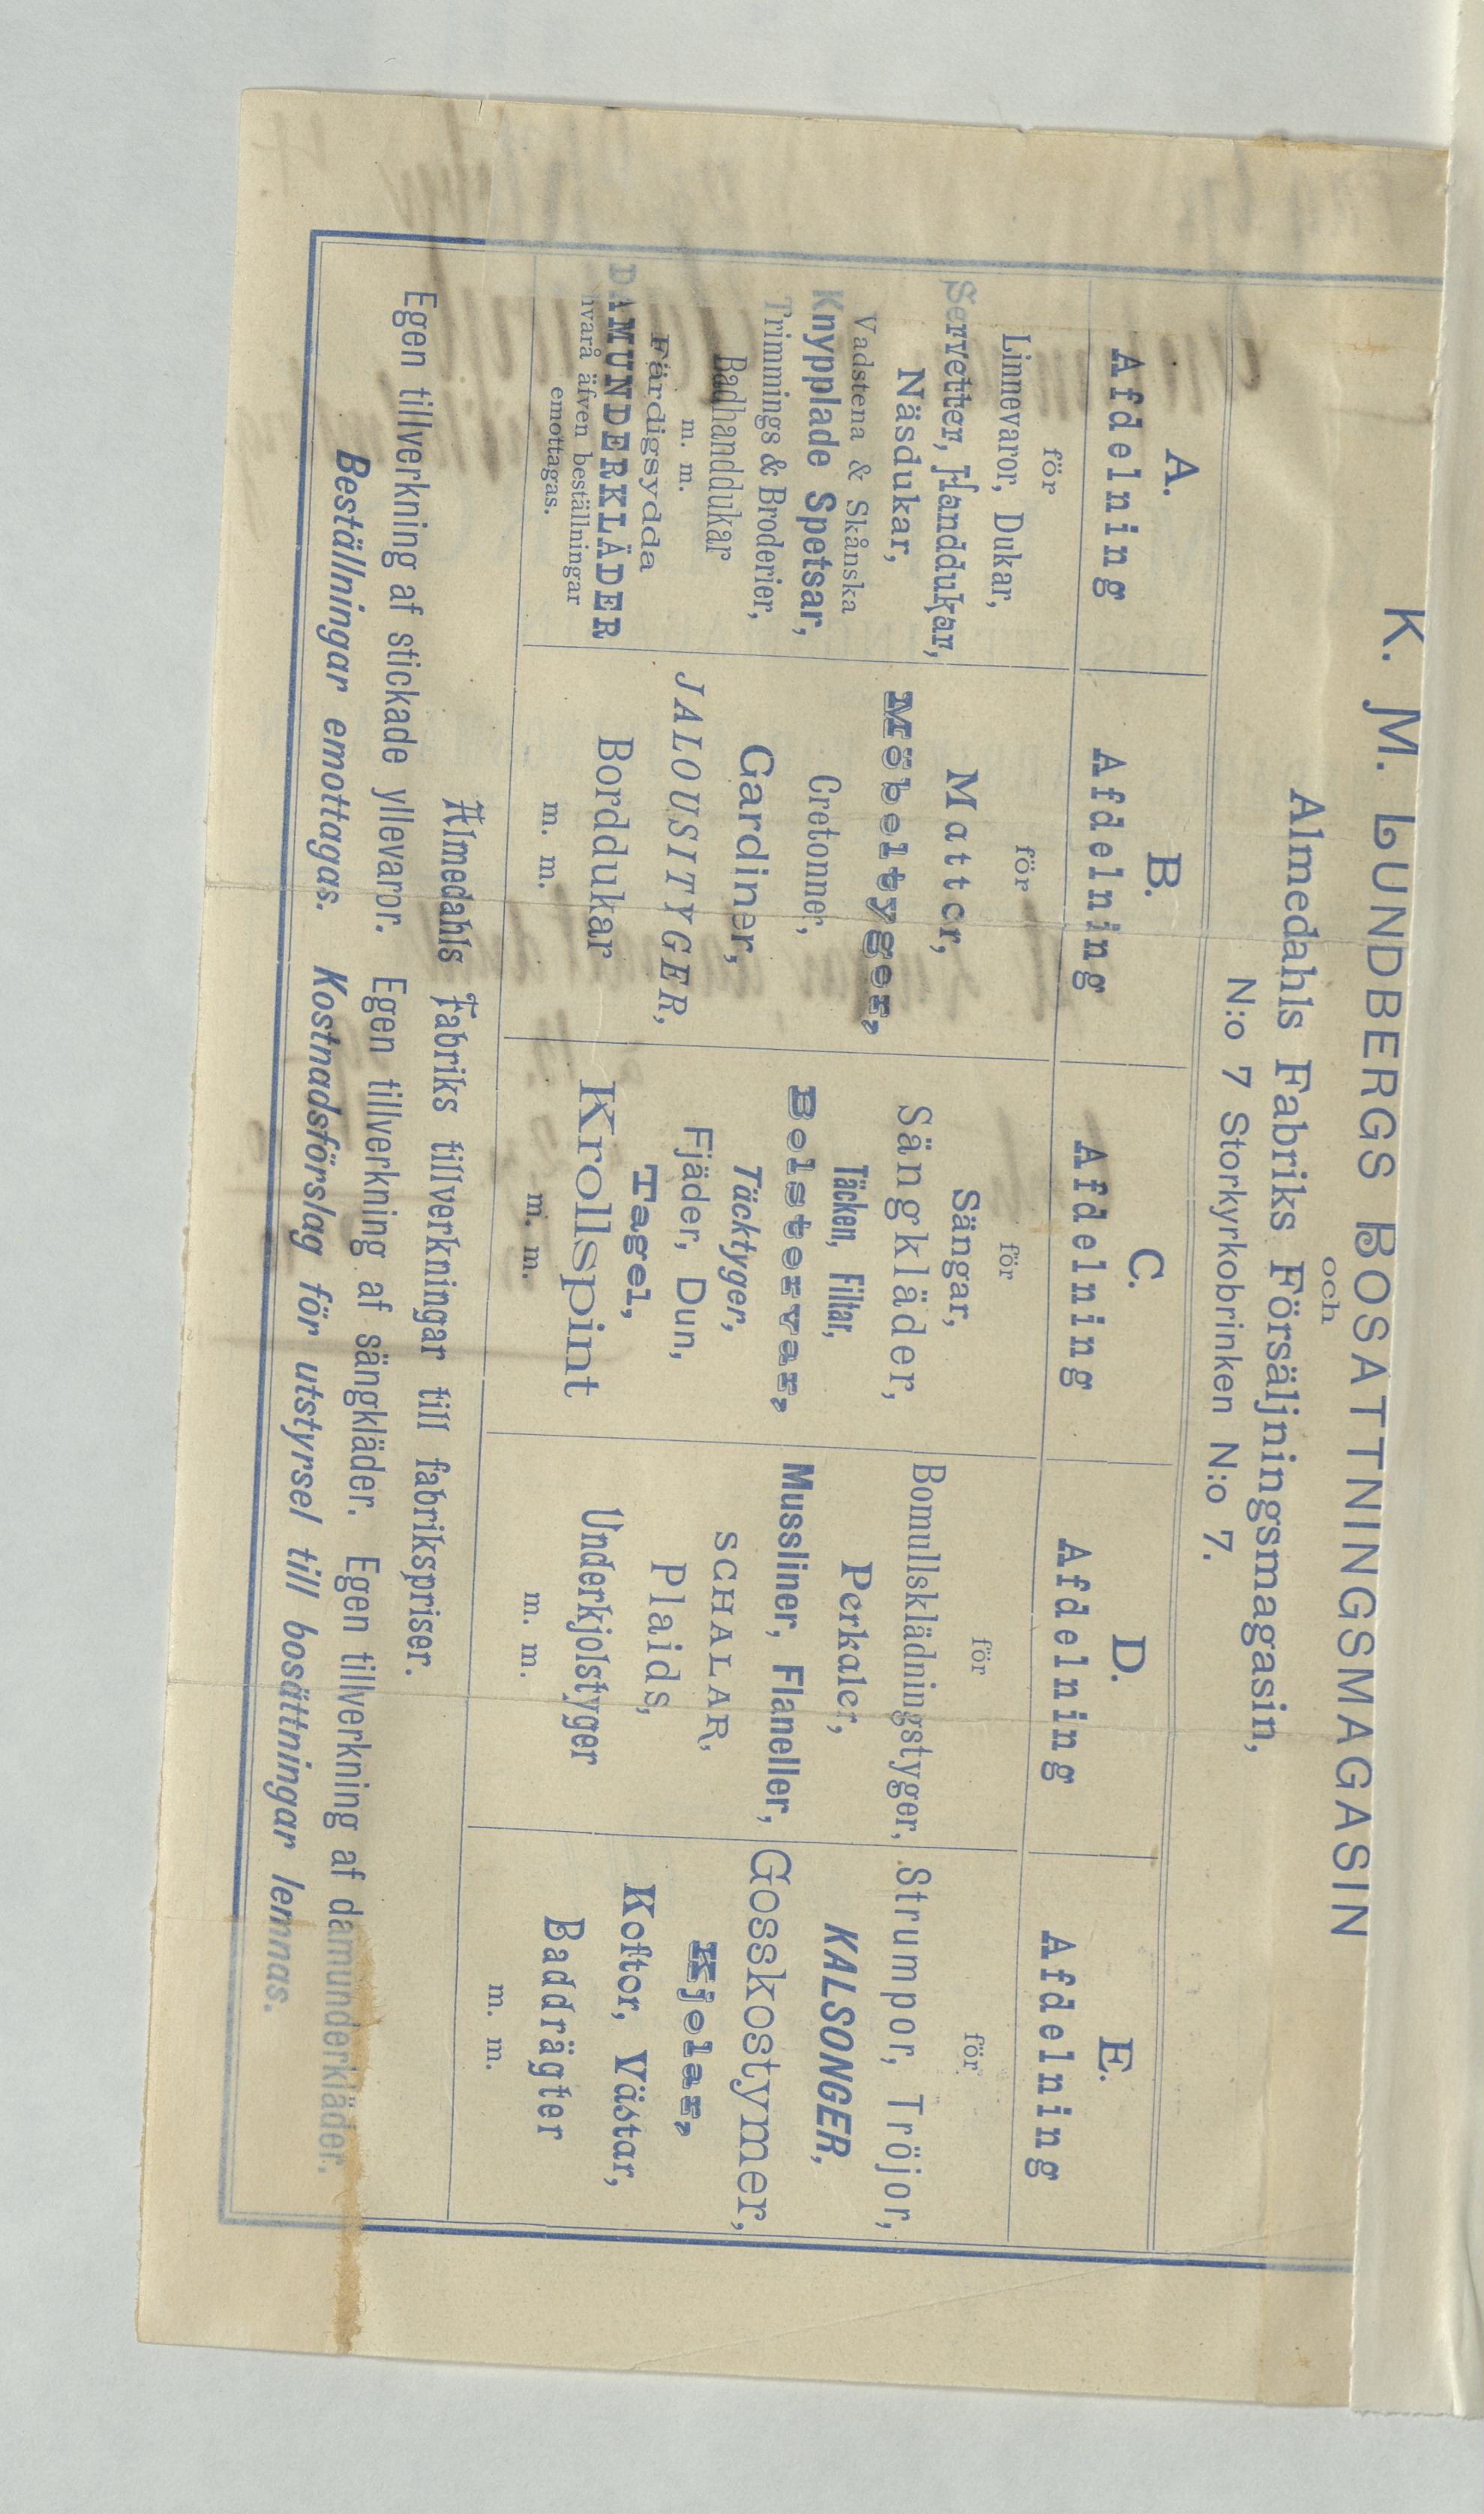 K. M. LUNDBERGS BOSATTNINGSMAGASIN
och
Almedahls Fabriks Försäljningsmagasin,
N:o 7 Storkyrkobrinken N:o 7.
A.
Afdelning
för
Linnevaror, Dukar,
Servetter, Handdukar,
Näsdukar,
Vadstena & Skånska
Knypplade Spetsar,
Trimmings & Broderier,
Badhanddukar
m. m.
Färdigsydda
DAMUNDERKLÄDER
hvarå äfven beställningar
emottagas.
B.
Afdelning
för
Mattor,
Möbeltyger,
Cretonner,
Gardiner,
JALOUSITYGER,
Borddukar
m. m.
C.
Afdelning
för
Sängar,
Sängkläder,
Täcken, Filtar,
Bolstervar,
Täcktyger,
Fjäder, Dun,
Tagel,
Krollspint
m. m.
D.
Afdelning
för
Bomullsklädningstyger,
Perkaler,
Mussliner, Flaneller,
SCHALAR,
Plaids,
Underkjolstyger
m. m.
E.
Afdelning
för
Strumpor, Tröjor,
KALSONGER,
Gosskostymer,
Kjolar,
Koftor, Västar,
Baddrägter
m. m.
Almedahls Fabriks tillverkningar till fabrikspriser.
Egen tillverkning af stickade yllevaror. Egen tillverkning af sängkläder. Egen tillverkning af damunderkläder.
Beställningar emottagas. Kostnadsförslag för utstyrsel till bosättningar lemnas.